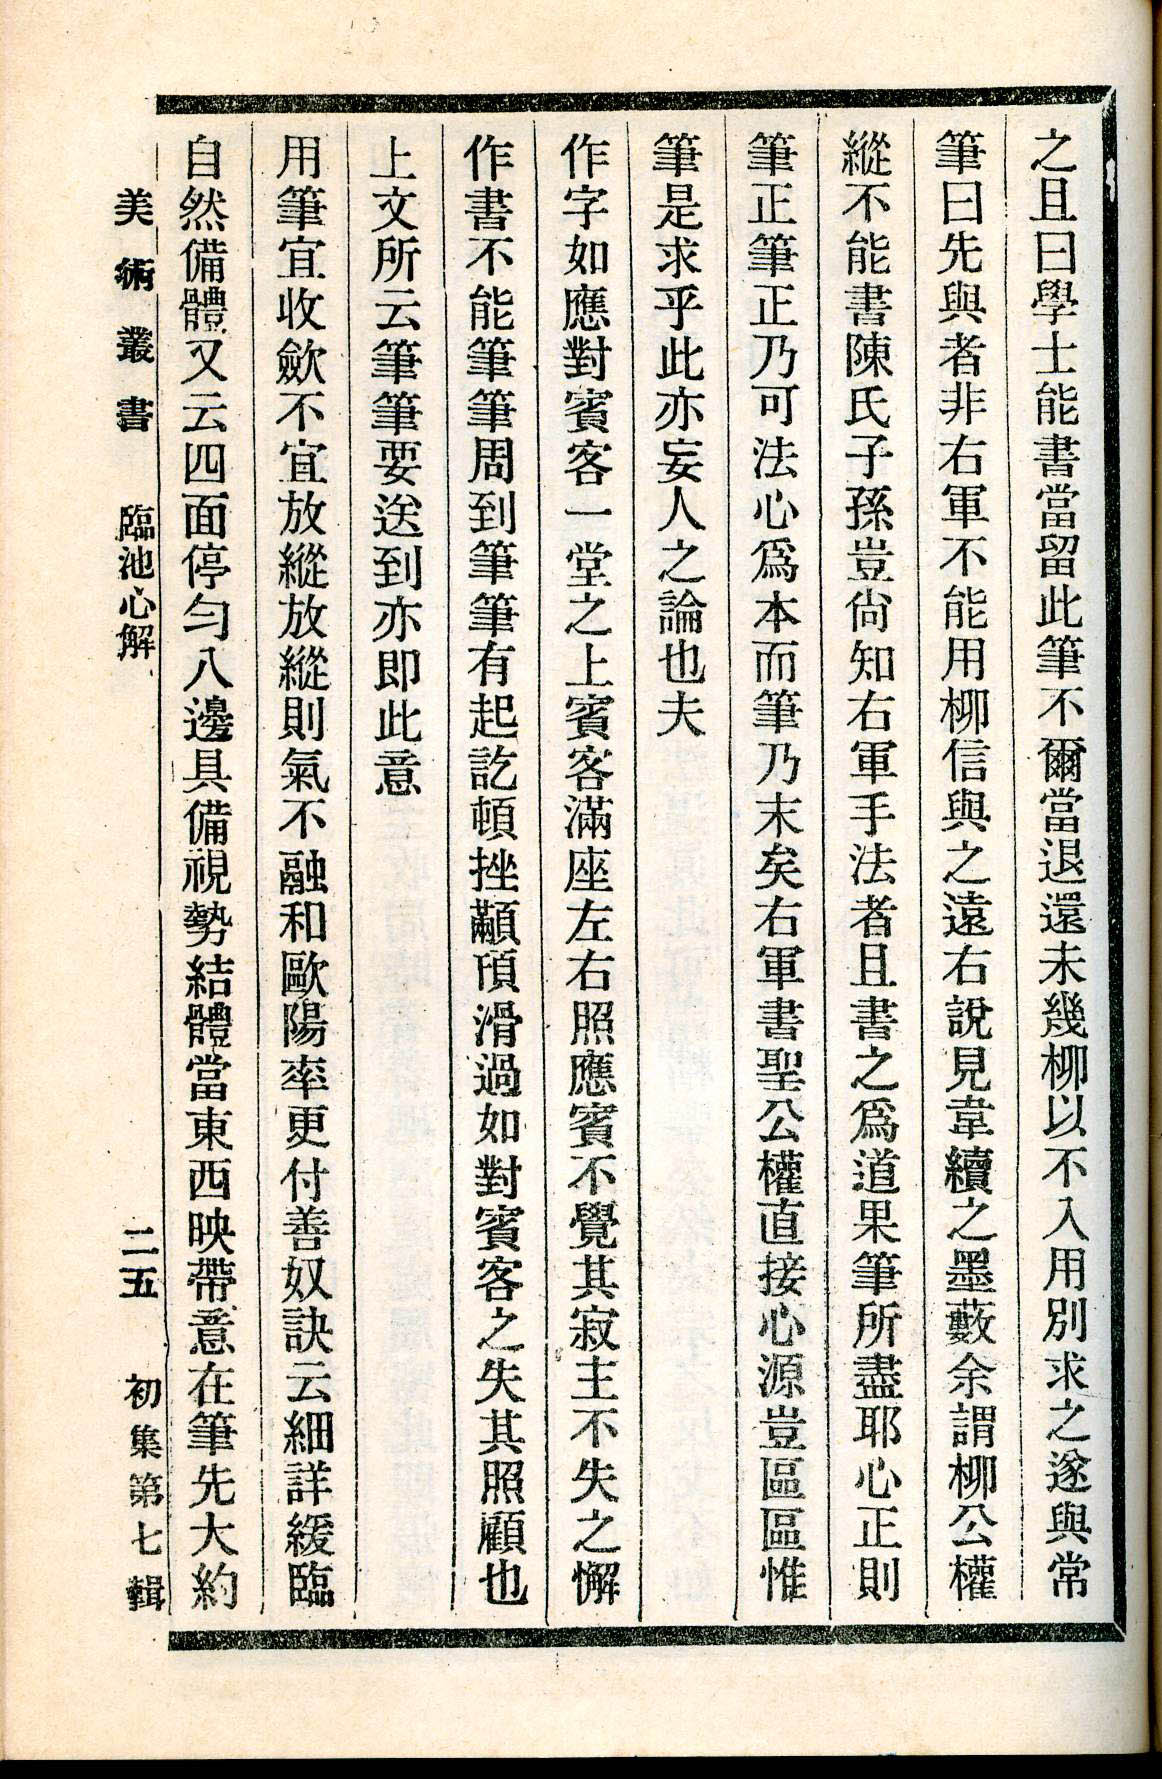 之且曰學士能書當留此筆不爾當退還未幾柳以不入用別求之遂與常
筆曰先與者非右軍不能用柳信與之遠右說見韋續之墨藪余謂柳公權
縱不能書陳氏子孫豈尙知右軍手法者且書之爲道果筆所盡耶心正則
筆正筆正乃可法心爲本而筆乃末矣右軍書聖公權直接心源豈區區惟
筆是求乎此亦妄人之論也夫
作字如應對賓客一堂之上賓客滿座左右照應賓不覺其寂主不失之懈
作書不能筆筆周到筆筆有起訖頓挫顢頇滑過如對賓客之失其照顧也
上文所云筆筆要送到亦即此意
用筆宜收歛不宜放縱放縱則氣不融和歐陽率更付善奴訣云細詳緩臨
自然備體又云四面停勻八邊具備視勢結體當東西映帶意在筆先大約
美術叢書 臨池心解 二五 初集第七輯